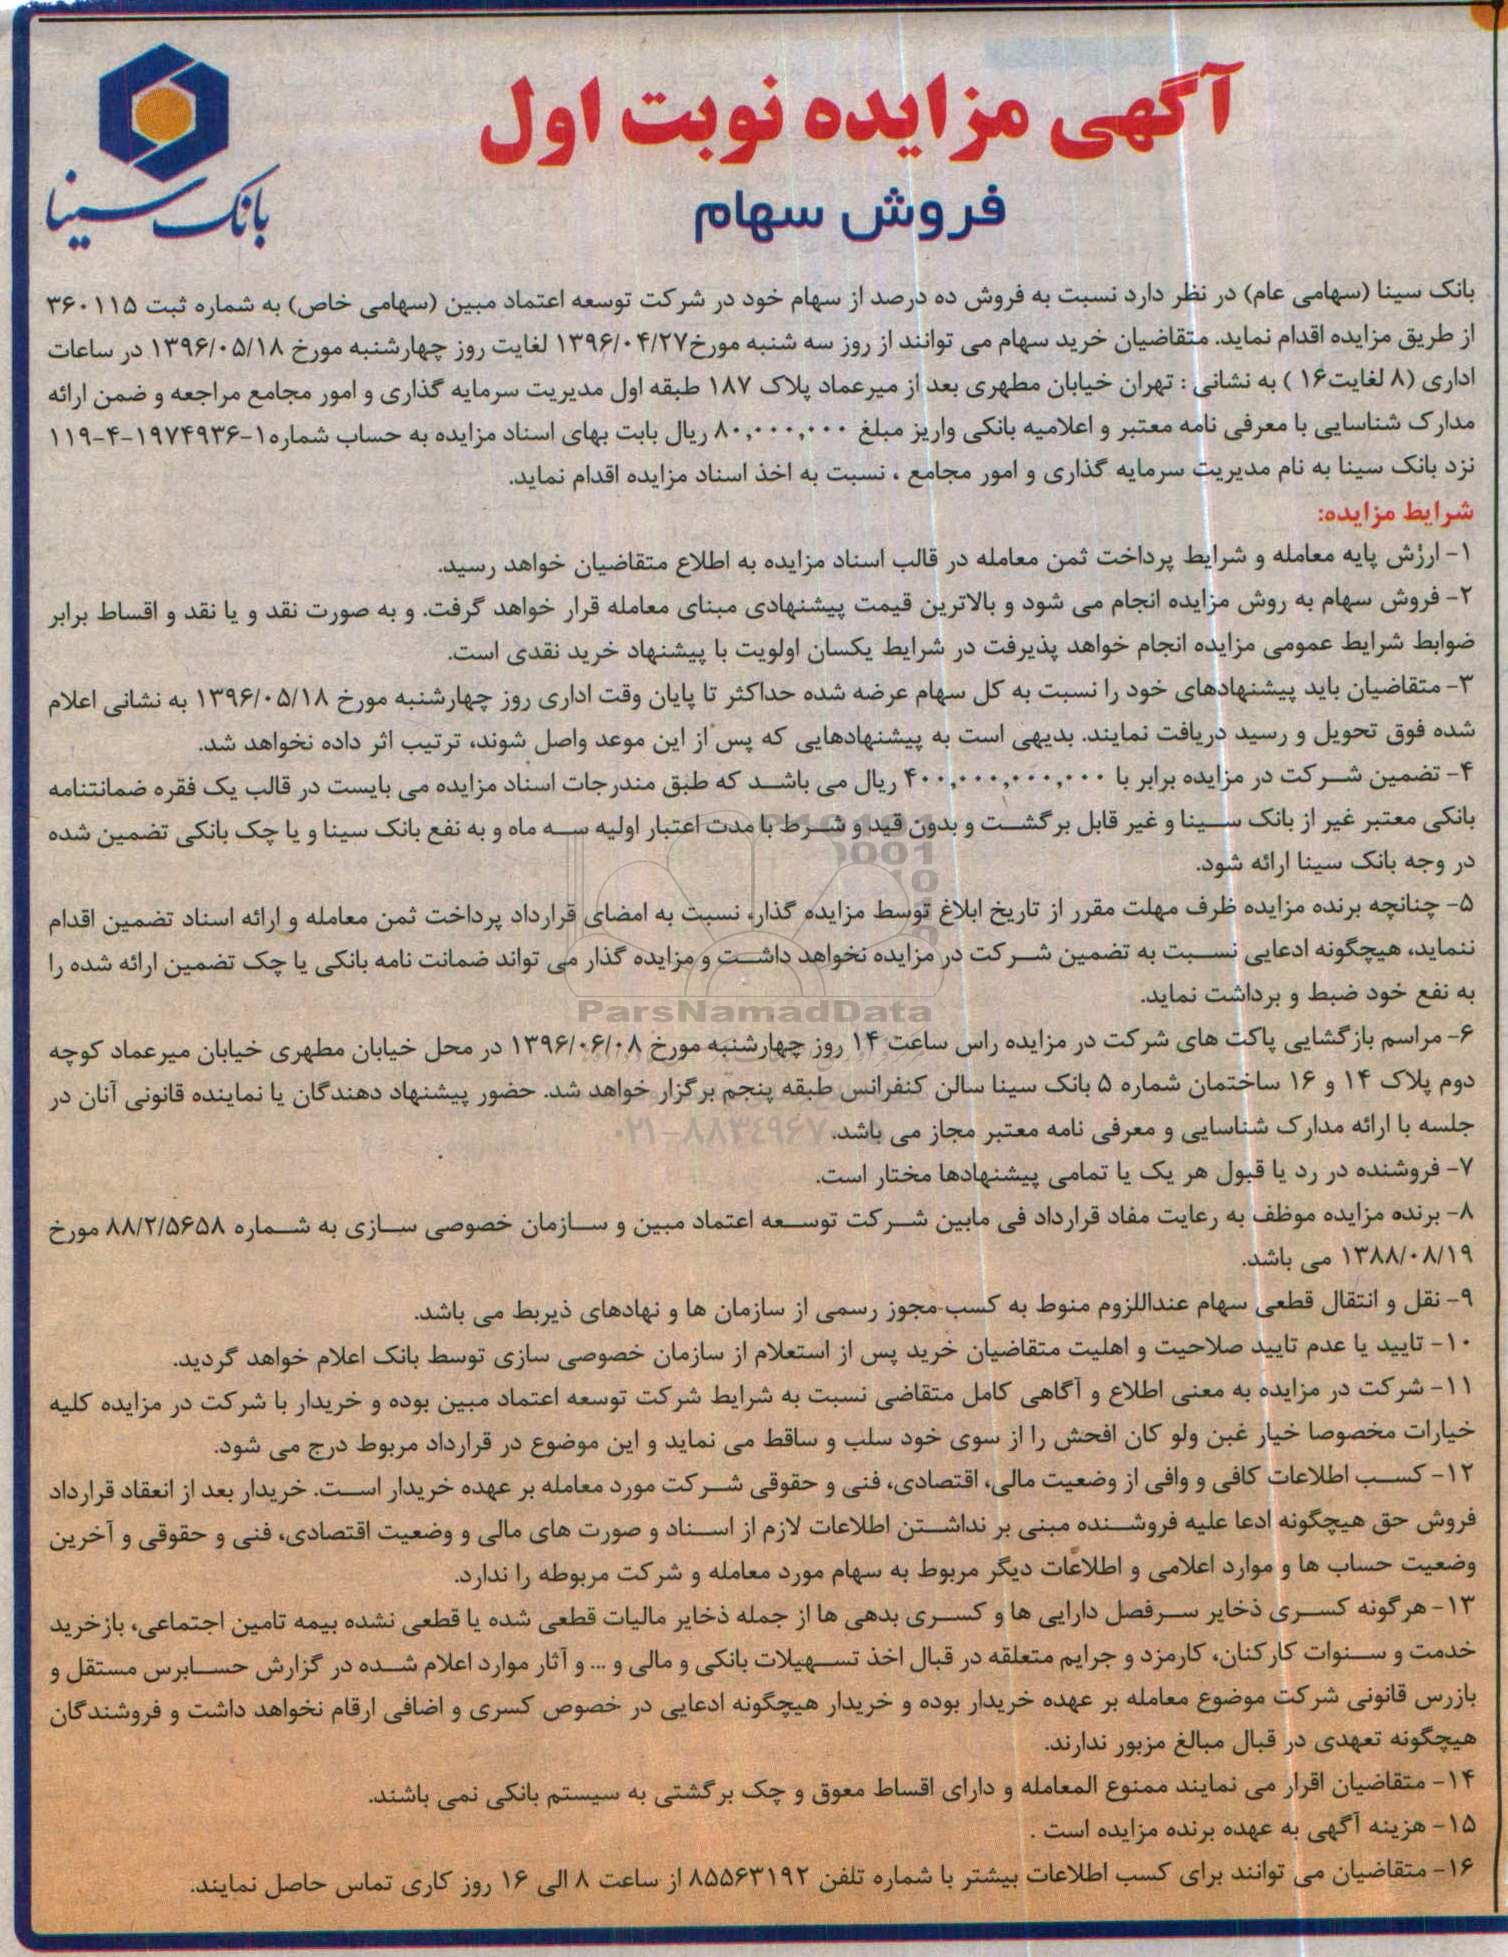 آگهی مزایده نوبت اول
فروش سهام
بانک سینا
بانک سینا (سهامی عام) در نظر دارد نسبت به فروش ده درصد از سهام خود در شرکت توسعه اعتماد مبین (سهامی خاص) به شماره ثبت ۳۶۰۱۱۵
از طریق مزایده اقدام نماید. متقاضیان خرید سهام می توانند از روز سه شنبه مورخ۱۳۹۶/۰۴/۲۷ لغایت روز چهارشنبه مورخ ۱۳۹۶/۰۵/۱۸ در ساعات
اداری (۸ لغایت۱۶ ) به نشانی : تهران خیابان مطهری بعد از میرعماد پلاک ۱۸۷ طبقه اول مدیریت سرمایه گذاری و امور مجامع مراجعه و ضمن ارائه
مدارک شناسایی با معرفی نامه معتبر و اعلامیه بانکی واریز مبلغ ۸۰,۰۰۰,۰۰۰ ریال بابت بهای اسناد مزایده به حساب شماره۱-۱۹۷۴۹۳۶-۴-۱۱۹
نزد بانک سینا به نام مدیریت سرمایه گذاری و امور مجامع ، نسبت به اخذ اسناد مزایده اقدام نماید.
شرایط مزایده:
۱- ارزش پایه معامله و شرایط پرداخت ثمن معامله در قالب اسناد مزایده به اطلاع متقاضیان خواهد رسید.
۲- فروش سهام به روش مزایده انجام می شود و بالاترین قیمت پیشنهادی مبنای معامله قرار خواهد گرفت. و به صورت نقد و یا نقد و اقساط برابر
ضوابط شرایط عمومی مزایده انجام خواهد پذیرفت در شرایط یکسان اولویت با پیشنهاد خرید نقدی است.
۳- متقاضیان باید پیشنهادهای خود را نسبت به کل سهام عرضه شده حداکثر تا پایان وقت اداری روز چهارشنبه مورخ ۱۳۹۶/۰۵/۱۸ به نشانی اعلام
شده فوق تحویل و رسید دریافت نمایند. بدیهی است به پیشنهادهایی که پس از این موعد واصل شوند، ترتیب اثر داده نخواهد شد.
۴- تضمین شرکت در مزایده برابر با ۴۰۰,۰۰۰,۰۰۰,۰۰۰ ریال می باشد که طبق مندرجات اسناد مزایده می بایست در قالب یک فقره ضمانتنامه
بانکی معتبر غیر از بانک سینا و غیر قابل برگشت و بدون قید و شرط با مدت اعتبار اولیه سه ماه و به نفع بانک سینا و یا چک بانکی تضمین شده
در وجه بانک سینا ارائه شود.
۵- چنانچه برنده مزایده ظرف مهلت مقرر از تاریخ ابلاغ توسط مزایده گذار، نسبت به امضای قرارداد پرداخت ثمن معامله و ارائه اسناد تضمین اقدام
ننماید، هیچگونه ادعایی نسبت به تضمین شرکت در مزایده نخواهد داشت و مزایده گذار می تواند ضمانت نامه بانکی یا چک تضمین ارائه شده را
به نفع خود ضبط و برداشت نماید.
ParsNamadData
۶- مراسم بازگشایی پاکت های شرکت در مزایده راس ساعت ۱۴ روز چهارشنبه مورخ ۱۳۹۶/۰۶/۰۸ در محل خیابان مطهری خیابان میرعماد کوچه
دوم پلاک ۱۴ و ۱۶ ساختمان شماره ۵ بانک سینا سالن کنفرانس طبقه پنجم برگزار خواهد شد. حضور پیشنهاد دهندگان یا نماینده قانونی آنان در
جلسه با ارائه مدارک شناسایی و معرفی نامه معتبر مجاز می باشد.
۷- فروشنده در رد یا قبول هر یک یا تمامی پیشنهادها مختار است.
۸- برنده مزایده موظف به رعایت مفاد قرارداد فی مابین شرکت توسعه اعتماد مبین و سازمان خصوصی سازی به شماره ۸۸/۲/۵۶۵۸ مورخ
۱۳۸۸/۰۸/۱۹ می باشد.
۹- نقل و انتقال قطعی سهام عنداللزوم منوط به کسب مجوز رسمی از سازمان ها و نهادهای ذیربط می باشد.
۱۰- تایید یا عدم تایید صلاحیت و اهلیت متقاضیان خرید پس از استعلام از سازمان خصوصی سازی توسط بانک اعلام خواهد گردید.
۱۱- شرکت در مزایده به معنی اطلاع و آگاهی کامل متقاضی نسبت به شرایط شرکت توسعه اعتماد مبین بوده و خریدار با شرکت در مزایده کلیه
خیارات مخصوصا خیار غبن ولو کان افحش را از سوی خود سلب و ساقط می نماید و این موضوع در قرارداد مربوط درج می شود.
۱۲- کسب اطلاعات کافی و وافی از وضعیت مالی، اقتصادی، فنی و حقوقی شرکت مورد معامله بر عهده خریدار است. خریدار بعد از انعقاد قرارداد
فروش حق هیچگونه ادعا علیه فروشنده مبنی بر نداشتن اطلاعات لازم از اسناد و صورت های مالی و وضعیت اقتصادی، فنی و حقوقی و آخرین
وضعیت حساب ها و موارد اعلامی و اطلاعات دیگر مربوط به سهام مورد معامله و شرکت مربوطه را ندارد.
۱۳- هرگونه کسری ذخایر سرفصل دارایی ها و کسری بدهی ها از جمله ذخایر مالیات قطعی شده یا قطعی نشده بیمه تامین اجتماعی، بازخرید
خدمت و سنوات کارکنان، کارمزد و جرایم متعلقه در قبال اخذ تسهیلات بانکی و مالی و ... و آثار موارد اعلام شده در گزارش حسابرس مستقل و
بازرس قانونی شرکت موضوع معامله بر عهده خریدار بوده و خریدار هیچگونه ادعایی در خصوص کسری و اضافی ارقام نخواهد داشت و فروشندگان
هیچگونه تعهدی در قبال مبالغ مزبور ندارند.
۱۴- متقاضیان اقرار می نمایند ممنوع المعامله و دارای اقساط معوق و چک برگشتی به سیستم بانکی نمی باشند.
۱۵- هزینه آگهی به عهده برنده مزایده است .
۱۶- متقاضیان می توانند برای کسب اطلاعات بیشتر با شماره تلفن ۸۵۵۶۳۱۹۲ از ساعت ۸ الی ۱۶ روز کاری تماس حاصل نمایند.